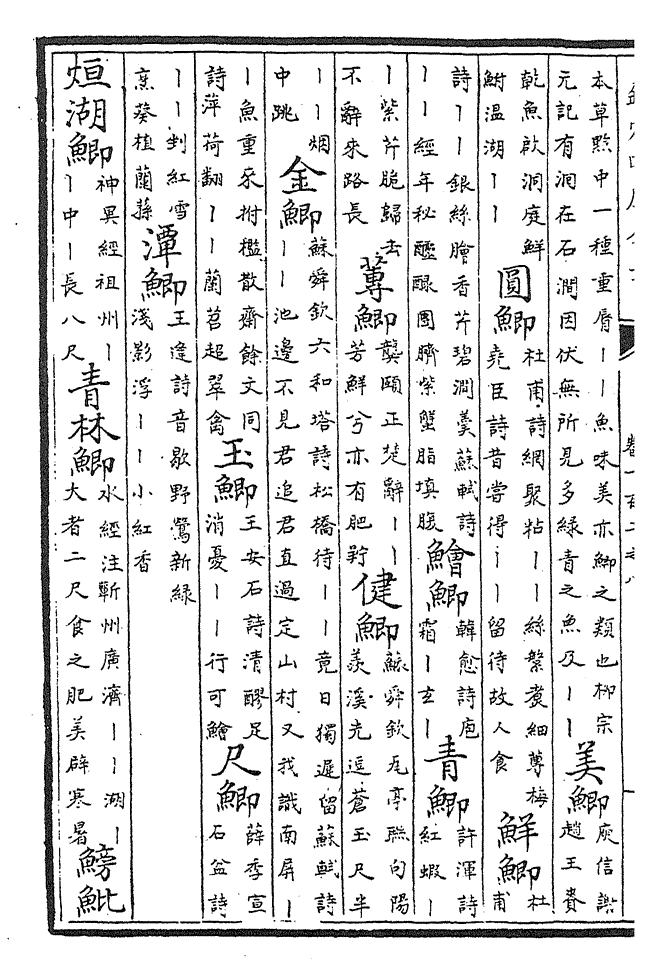 本草黔中一種重脣丨丨魚味美亦鯽之類也柳宗
元記有洞在石澗因伏無所見多綠青之魚及丨丨
美鯽
庾信謝
趙王賚
乾魚啟洞庭鮮
鮒溫湖丨丨
圓鯽
杜甫詩網聚粘丨丨絲繁煮細蓴梅
堯臣詩昔嘗得丨丨留待故人食
鮮鯽
杜
甫
詩丨丨銀絲膾香芹碧澗羹蘇軾詩
丨丨經年秘醽醁團臍紫蟹脂填腹
鱠鯽
韓愈詩庖
霜丨玄丨
青鯽
許渾詩
紅蝦丨
丨紫芹脆歸去
不辭來路長
蓴鯽
龔頤正楚辭丨丨
芳鮮兮亦有肥羜
健鯽
蘇舜欽瓦亭聯句陽
羨溪光逗蒼玉尺半
丨丨烟
中跳
金鯽
蘇舜欽六和塔詩松橋待丨丨竟日獨遲留蘇軾詩
丨丨池邊不見君追君直過定山村又我識南屏丨
丨魚重來拊檻散齋餘文同
詩萍荷翻丨丨蘭苕超翠禽
玉鯽
王安石詩清醪足
消憂丨丨行可鱠
尺鯽
薛季宣
石盆詩
丨丨剉紅雪
烹葵植蘭蓀
潭鯽
王逢詩音歇野鶯新緑
淺影浮丨丨小紅香
烜湖鯽
神異經祖州丨
丨中丨長八尺
青林鯽
水經注蘄州廣濟丨丨湖丨
大者二尺食之肥美辟寒暑
鰟魮